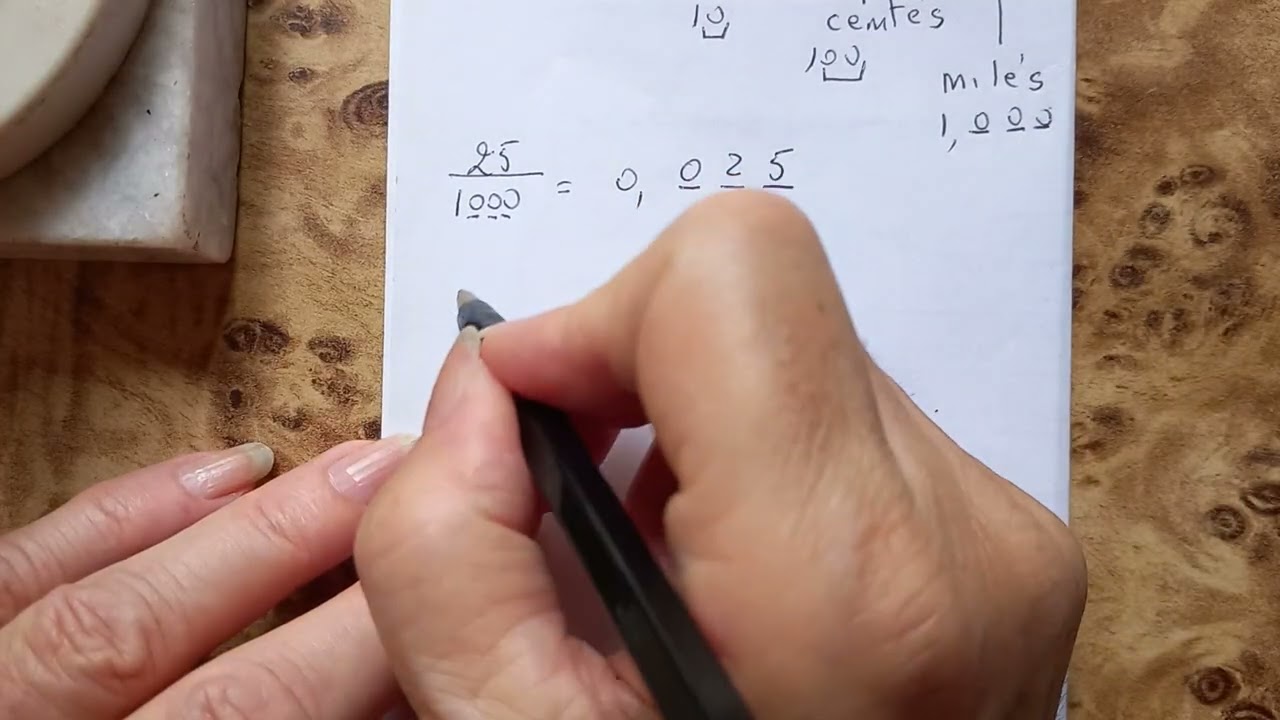 10,
centes
100,
mile's
1,000
25
1000 = 0,025